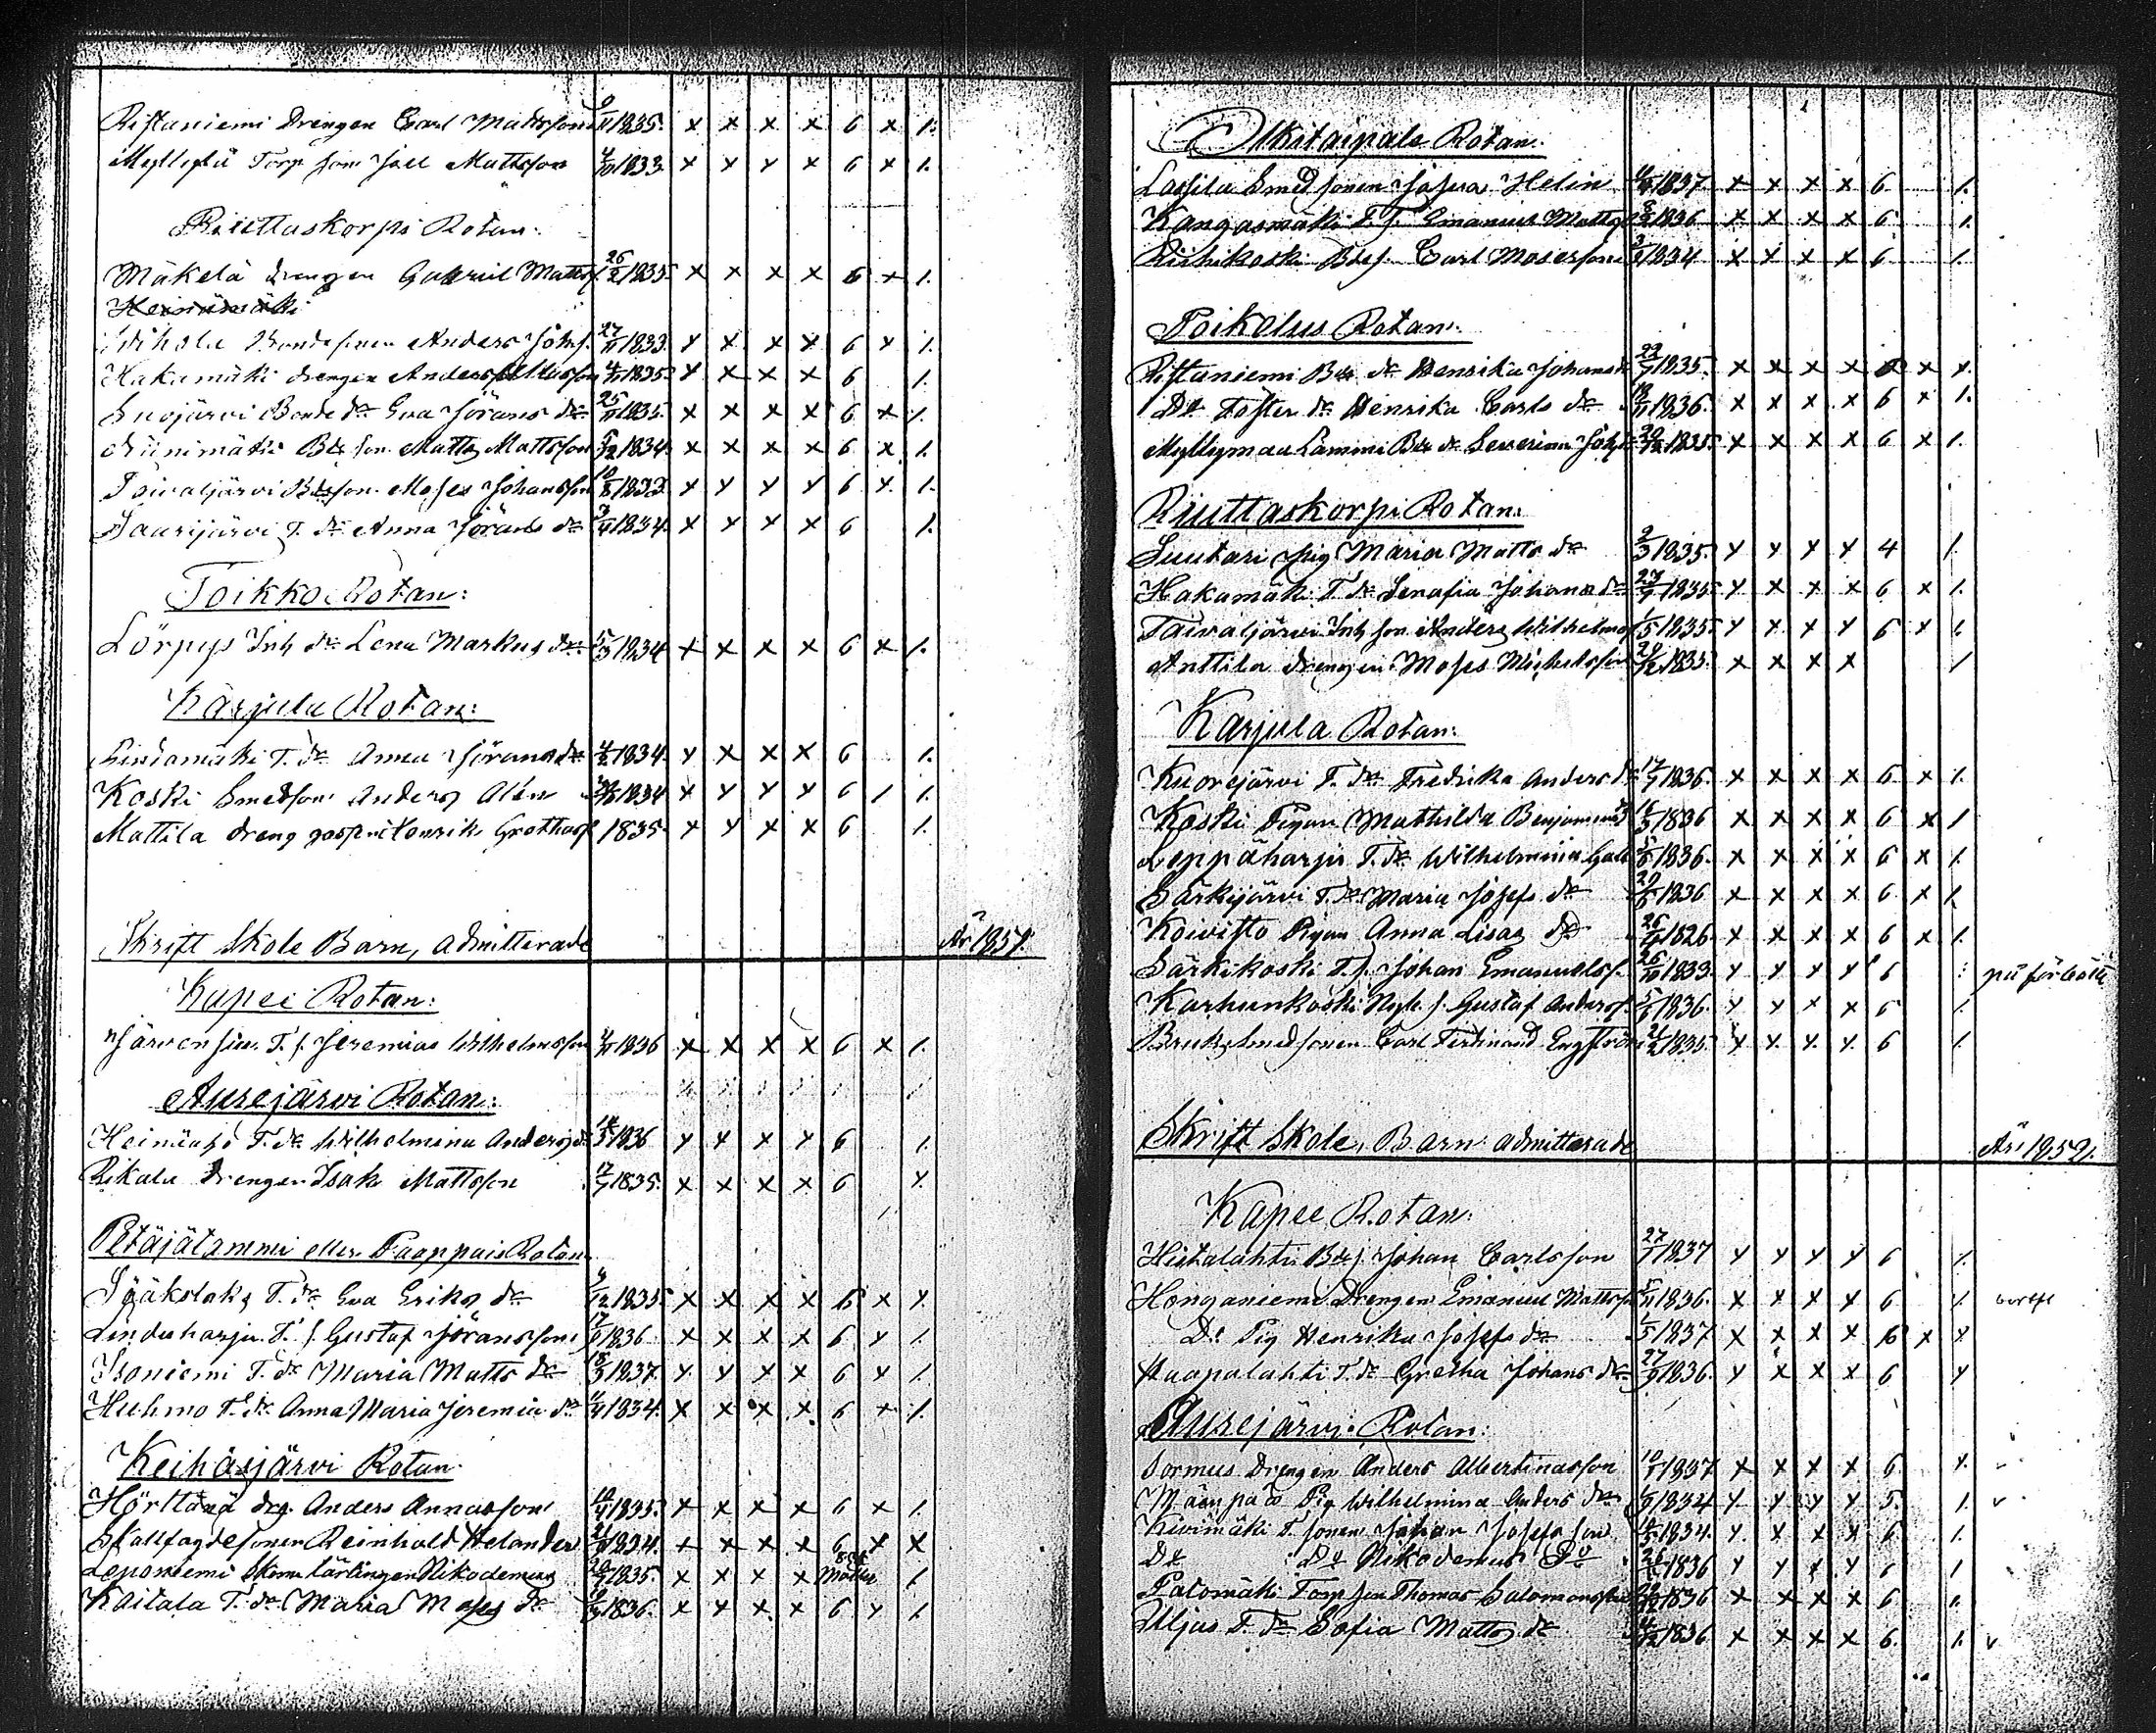 Ristaniemi Drengen Carl Mattsson 9/11 1835. x x x x 6 x 1.
Myllylä Torp son Joel Mattsson 4/10 1833 x x x x 6 x 1.
Riuttaskorpi Rotan.
Mäkelä drengen Gabriel Mattss. 26/2 1835. x x x x 6 x 1.
Heinämäki
Bondesonen Anders Johs. 27/11 1833. x x x x 6 x 1.
Hakamäki drengen Anders 1835. x x x x 6 1.
Suojärvi Bonde dr Eva Görans dr 25/11 1835. x x x x 6 x 1.
Niinimäki Bde son Matts Mattsson 5/12 1834. x x x x 6 x 1.
Taivaljärvi Bdeson Moses Johansson 10/8 1833 x x x x 6 x 1.
Saarijärvi T. dr Anna Görans dr 3/4 1834. x x x x 6 1.
Toikko Rotan:
Lörpys Inh dr Lena Markus dr 5/3 1834 x x x x 6 x 1.
Karjula Rotan:
Lindamäki T. dr Anna Görans dr 1834. x x x x 6 1.
Koski Smedson Anders Alén 1834 x x x x 6 1 1.
Mattila dreng Henrik 1835. x x x x 6 1.
Skrift Skole Barn, admitterade År 1851.
Kapee Rotan:
Järvensivu T. s. Jeremias Wilhelmsson 4/11 1836 x x x x 6 x 1.
Aurejärvi Rotan:
Heinäaho T. dr Wilhelmina Anders d. 14/5 1836 x x x x 6 1.
Rikala Drengen Isak Mattsson 12/7 1835. x x x x 6 x.
Petäjälammi eller Paappais Rotan
Jääkslaks T. dr Eva Eriks dr 4/12 1835. x x x x 6 x x.
Linduharju T. s. Gustaf Göransson 17/6 1836 x x x x 6 x 1.
Isoniemi T. dr Maria Matts dr 18/3 1837. x x x x 6 x 1.
Huhmo T. dr Anna Maria Jeremia dr 4/4 1834. x x x x 6 x 1.
Keihäsjärvi Rotan.
Hörttänä drg. Anders Annasson 10/4 1835. x x x x 6 x 1.
Skallfogdesonen Reinhold Helander 21/6 1834. x x x x 6 x x
Leponiemi Skom. lärlingen Nikodemus 1835. x x x x 1.
Kaitala T. dr Maria Moses dr 1836. x x x x 6 x 1.
Olkitaipale Rotan.
Lassila Smed sonen Josua Helin 1837 x x x x 6 1.
Kangasmäki T. s. Emanuel Matts 8/2 1836 x x x x 6 1.
Riihikoski Bdes. Carl Mosesson 3/2 1834 x x x x 6 1.
Poikelus Rotan.
Ristaniemi Bde dr Henrika Johans d 22/7 1835. x x x x 6 x x.
Do Foster dr Henrika Carls dr 18/11 1836. x x x x 6 x 1.
Myllymaa Lammi Bde dr Severina Johs 20/12 1835. x x x x 6 x 1.
Riuttaskorpi Rotan.
Suutari pig Maria Matts dr 2/3 1835. x x x x 4 1.
Hakamäki T. dr Serafia Johans dr 27/7 1835 x x x x 6 x 1.
Taivaljärvi Inh son Anders Wilhelms 1/5 1835 x x x x 6 x 1.
Anttila drengen Moses Michelsson 29/12 1835. x x x x 1
Karjula Rotan.
Kuorejärvi T. dr Fredrika Anders d 17/7 1836. x x x x 6 x 1.
Koski Pigan Mathilda Benjamins d 16/3 1836 x x x x 6 x 1
Leppäharju T. dr Wilhelmina Gab 5/6 1836. x x x x 6 x 1.
Särkijärvi T. dr Maria Josefs dr 20/6 1836 x x x x 6 x 1.
Koivisto Pigan Anna Lisas dr 26/4 1826. x x x x 6 x 1.
Särkikoski T. s. Johan Emanuelss. 26/10 1833. x x x x 6
Karhunkoski Nyb. s. Gustaf Anderss. 5/5 1836. x x x x 6 1.
Bruks Smedsonen Carl Ferdinand Engström 21/2 1835. x x x x 6 1.
Skrift Skole, Barn admitterade År 1852.
Kapee Rotan:
Hietalahti Bde s. Johan Carlsson 27/1 1837 x x x x 6 1.
Honganiemi Drengen Emanuel Mattss 5/11 1836. x x x x 6 1.
Do Pig Henrika Josefs dr 1/5 1837 x x x x 6 x x
Haapalahti T. dr Gretha Johans dr 27/9 1836. x x x x 6 x
Aurejärvi Rotan:
Sormus Drengen Anders Albertinasson 10/1 1837 x x x x 6 x.
Pig Wilhelmina Anders dr 1834 x x x x 5 1. v
Kivimäki T. sonen Johan Josefsson 1834. x x x x 6 1.
Do Do Nikodemus Do 26/6 1836 x x x x 6 1.
Palomäki Torp son Thomas Salomonsson 22/12 1836 x x x x 6 1.
Uljas T. dr Sofia Matts dr 1836. x x x x 6. 1. v